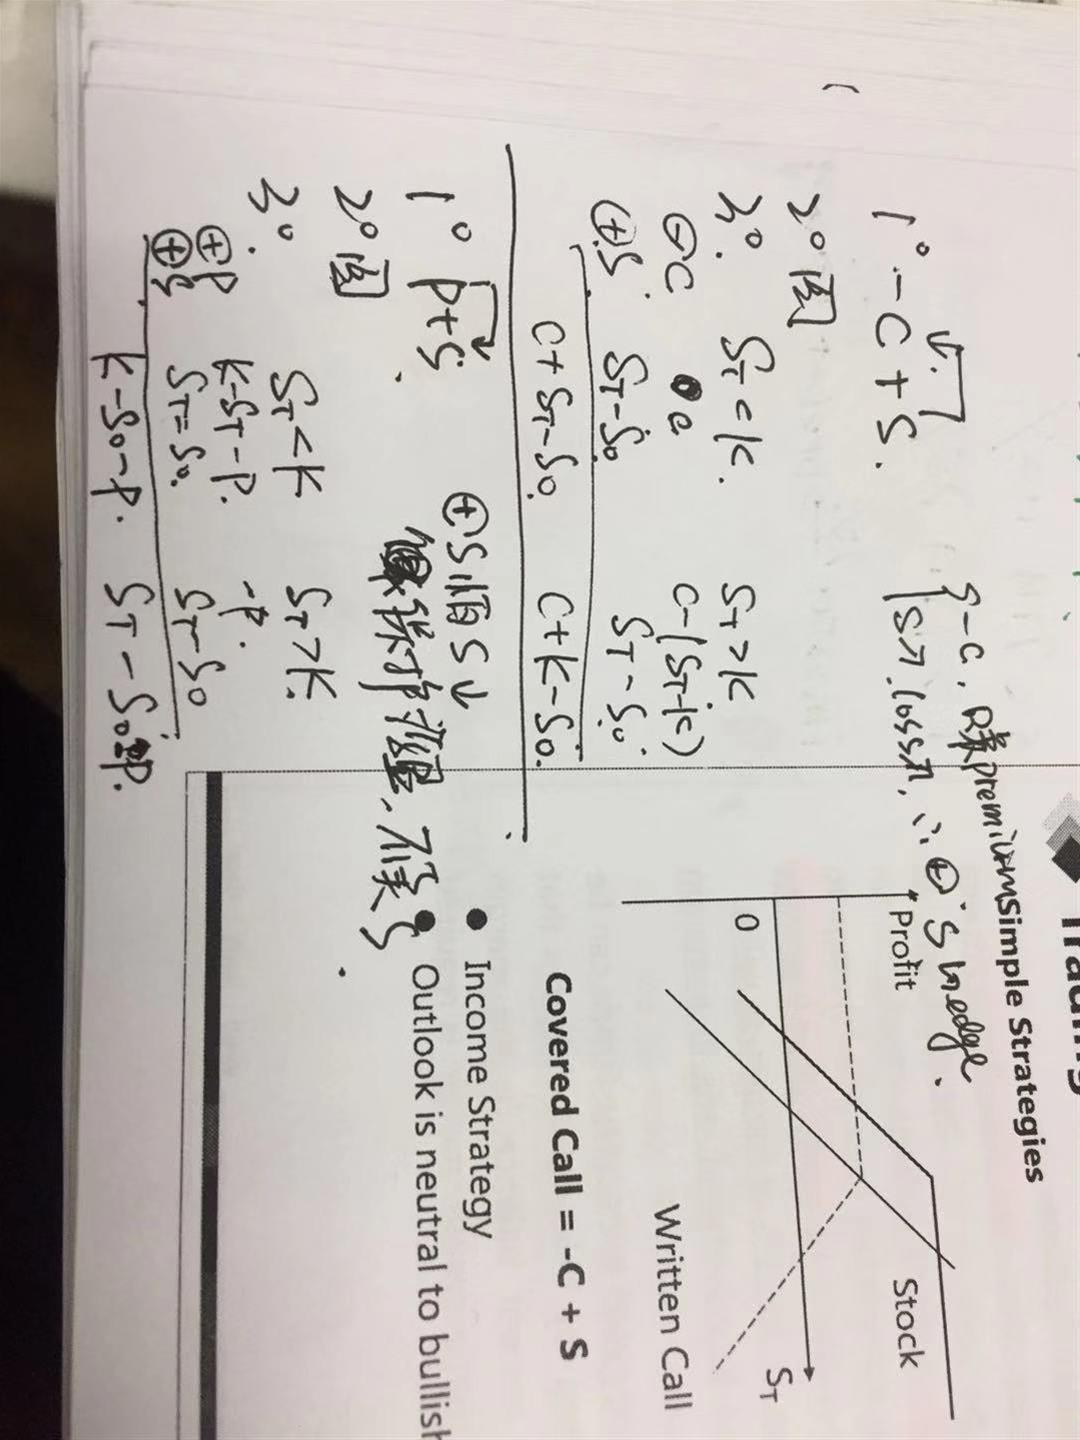 Simple Strategies
Profit
Stock
0
S_T
Written Call
Covered Call = -C + S
Income Strategy
Outlook is neutral to bullish
{-C,
premium
S↗, loss↗, ∴ ⊕ S hedge.
1° -C + S.
2° 图
3°. S_T < K. S_T > K
⊖C C C-(S_T-K)
⊕S. S_T-S_0 S_T-S_0.
C+S_T-S_0. C+K-S_0.
1° P+S.
⊕S 怕 S↓
2° 图
3°. S_T < K S_T > K.
⊕P K-S_T-P. -P.
⊕S. S_T=S_0. S_T-S_0
K-S_0-P. S_T-S_0-P.